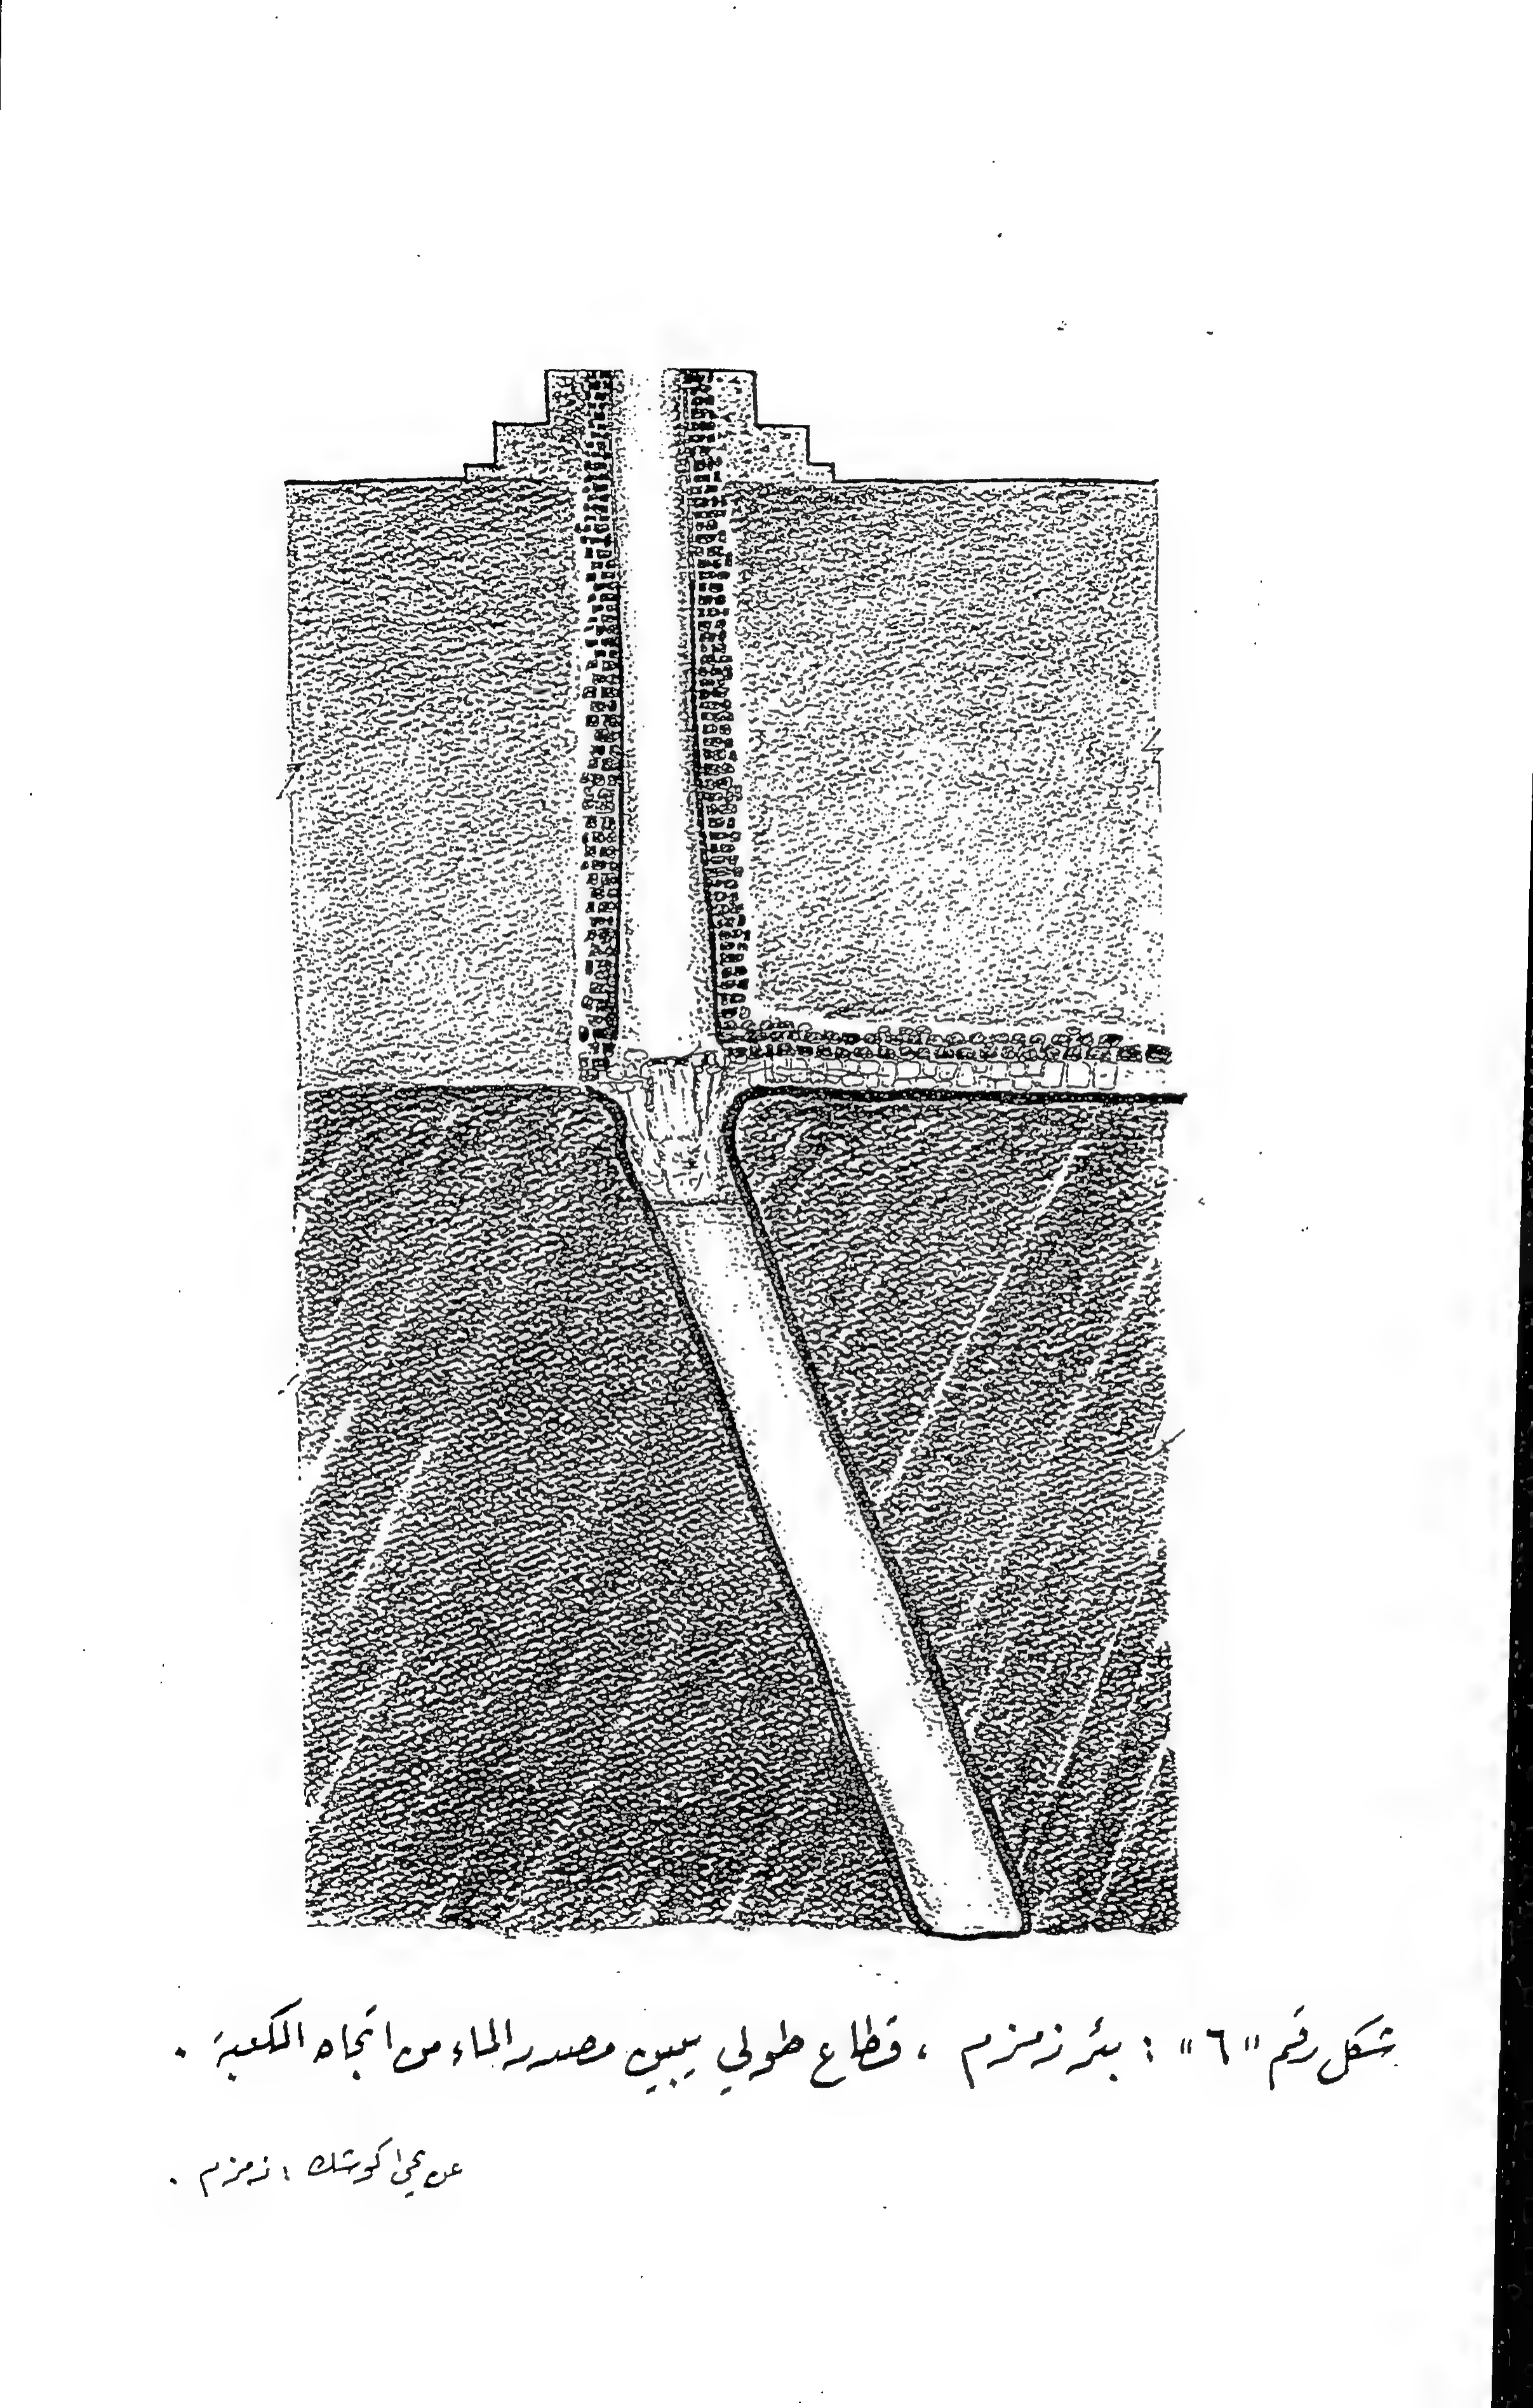 شكل رقم "٦" : بئر زمزم ، قطاع طولي يبين مصدر الماء من اتجاه الكعبة .
عن يحيى كوشك : زمزم .